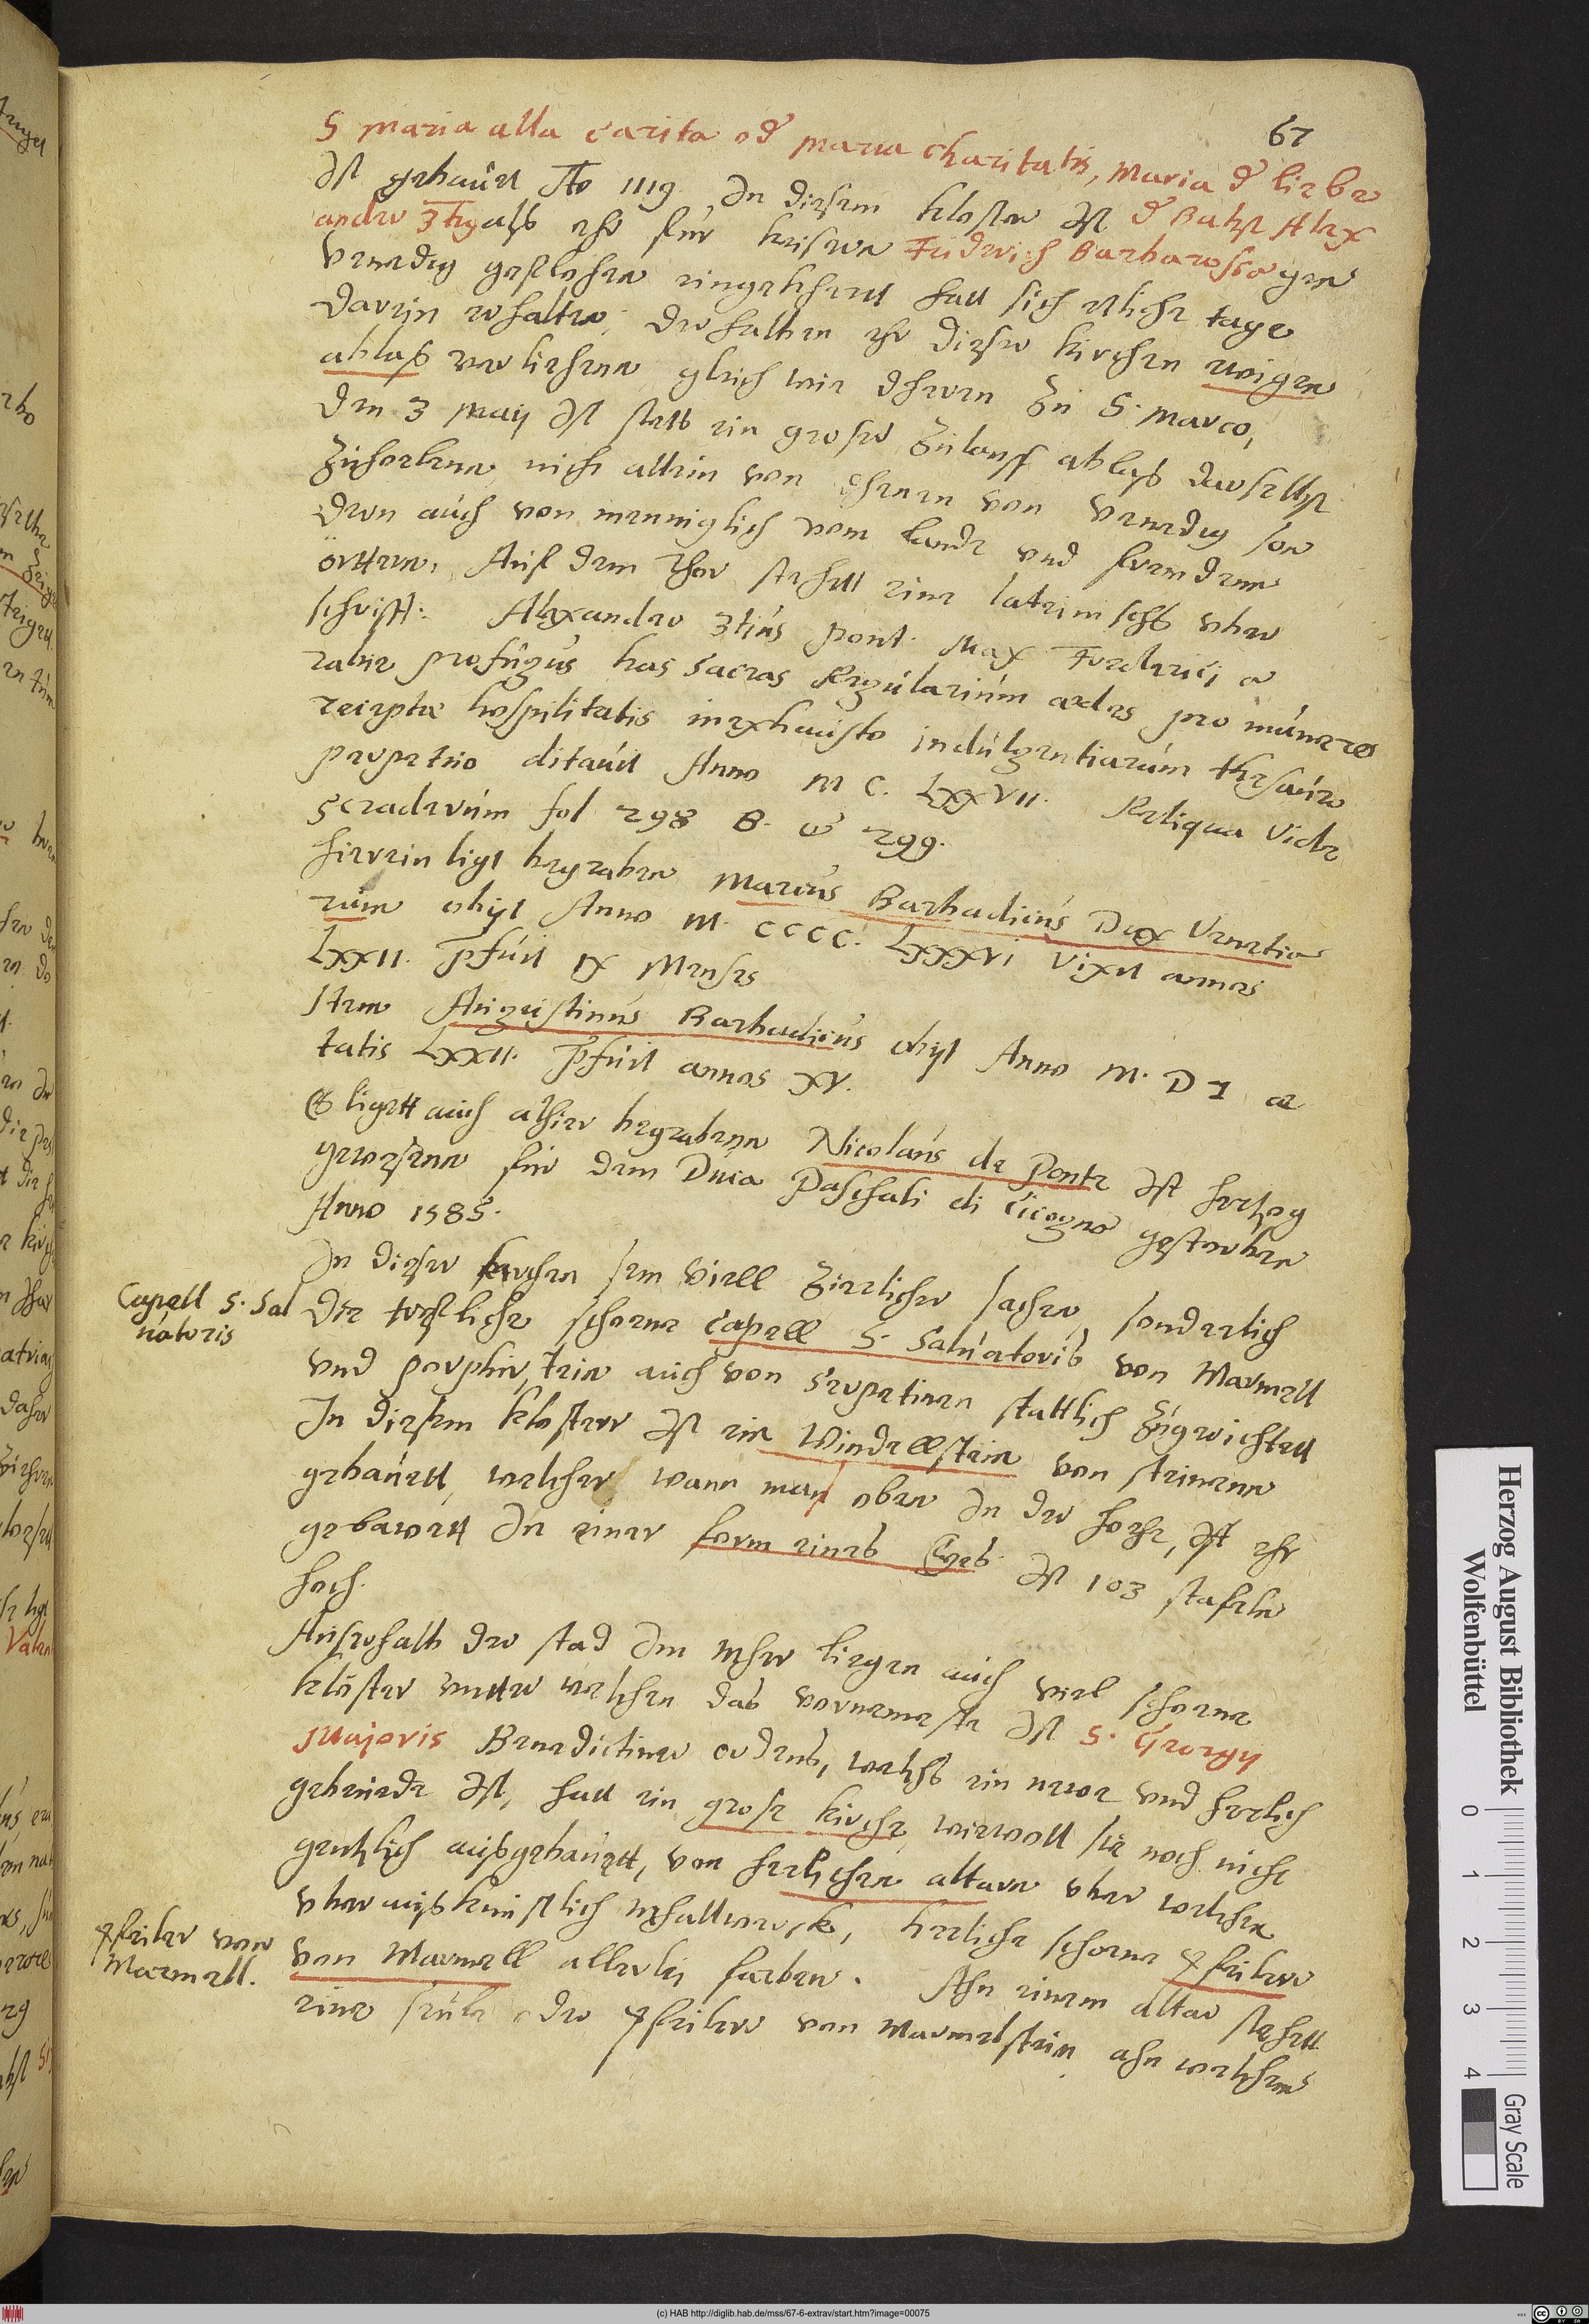 67
S Maria alla carita od Maria charitatis, Maria d liebe
Ist gebauet Ao 1119. In diesem kloster Ist d Babst Alex
ander 3tig alß ehr fur keiseren Fridrich Barbarossa gen
Venedig geflohen eingekheret hatt sich etliche tage
darein erhalten, derhalben ehr dieser kirchen ewigen
ablaß verliehenn gleich wie Iheren zu S. Marco,
den 3 Maij Ist stetts ein groser zulauff ablaß daselbst
zuholenn, nicht allein von Ihenen von Venedig son
dern auch von menniglich vom lande und frembdenn
örtteren, Auf dem Thor stehett eine lateinische uber
schrifft: Alexander 3tius Pont. Max Frederici a
rabie profugus has sacras Regularium aedes pro munere
receptae hospilitatis inexhausto indulgentiarum thesauro
perpetuo ditauit Anno M C. LXXVII. Reliqua vide
Scraderum fol 298 B. et 299.
hierein ligt begraben Marcus Barbadicus Dux Venetia
rum obijt Anno M. CCCC. LXXXVI vixit annos
LXXII. Pfuit IX Menses
Item Augustinus Barbadicus obijt Anno M. D I ae
tatis LXXII. Pfuit annos XV.
Es ligett auch alhier begrabenn Nicolaus de Ponte Ist hertzog
gewesenn fur dem Duca Paschali di Cicogna gestorben
Anno 1585.
In dieser kirchen sein viell zierlicher sachen, sonderlich
Capell S. Sal
uatoris
die trefliche schoene capell S. Saluatoris von Marmell
und porphir stein auch von serpetinen stattlich zugerichtett
In diesem kloster Ist ein Windellstein von steinenn
gebauett, welcher wann man oben In der hoehe, Ist ehr
gebawett In einer form eines Eyes Ist 103 stafeln
hoch.
Auserhalb der stad Im Mehr liegen auch viel schoene
klöster unter welchen das vornemeste Ist S. Georgij
Majoris Benedictiner ordens, welchs ein newe und herlich
gebeude Ist, hatt ein grose kirche, wiewoll sie noch nicht
gentzlich ausgebauett, von herlichen altaren uber welchen
uberaus kunstlich
Pfeiler von
Marmell.
herliche schoene Pfeiler
von Marmell allerlei farben. Ahn einem altar stehett
eine seule oder Pfeiler von Marmelstein ahn welchem
Herzog August Bibliothek
Wolfenbüttel
0 1 2 3 4
Gray Scale
(c) HAB http://diglib.hab.de/mss/67-6-extrav/start.htm?image=00075